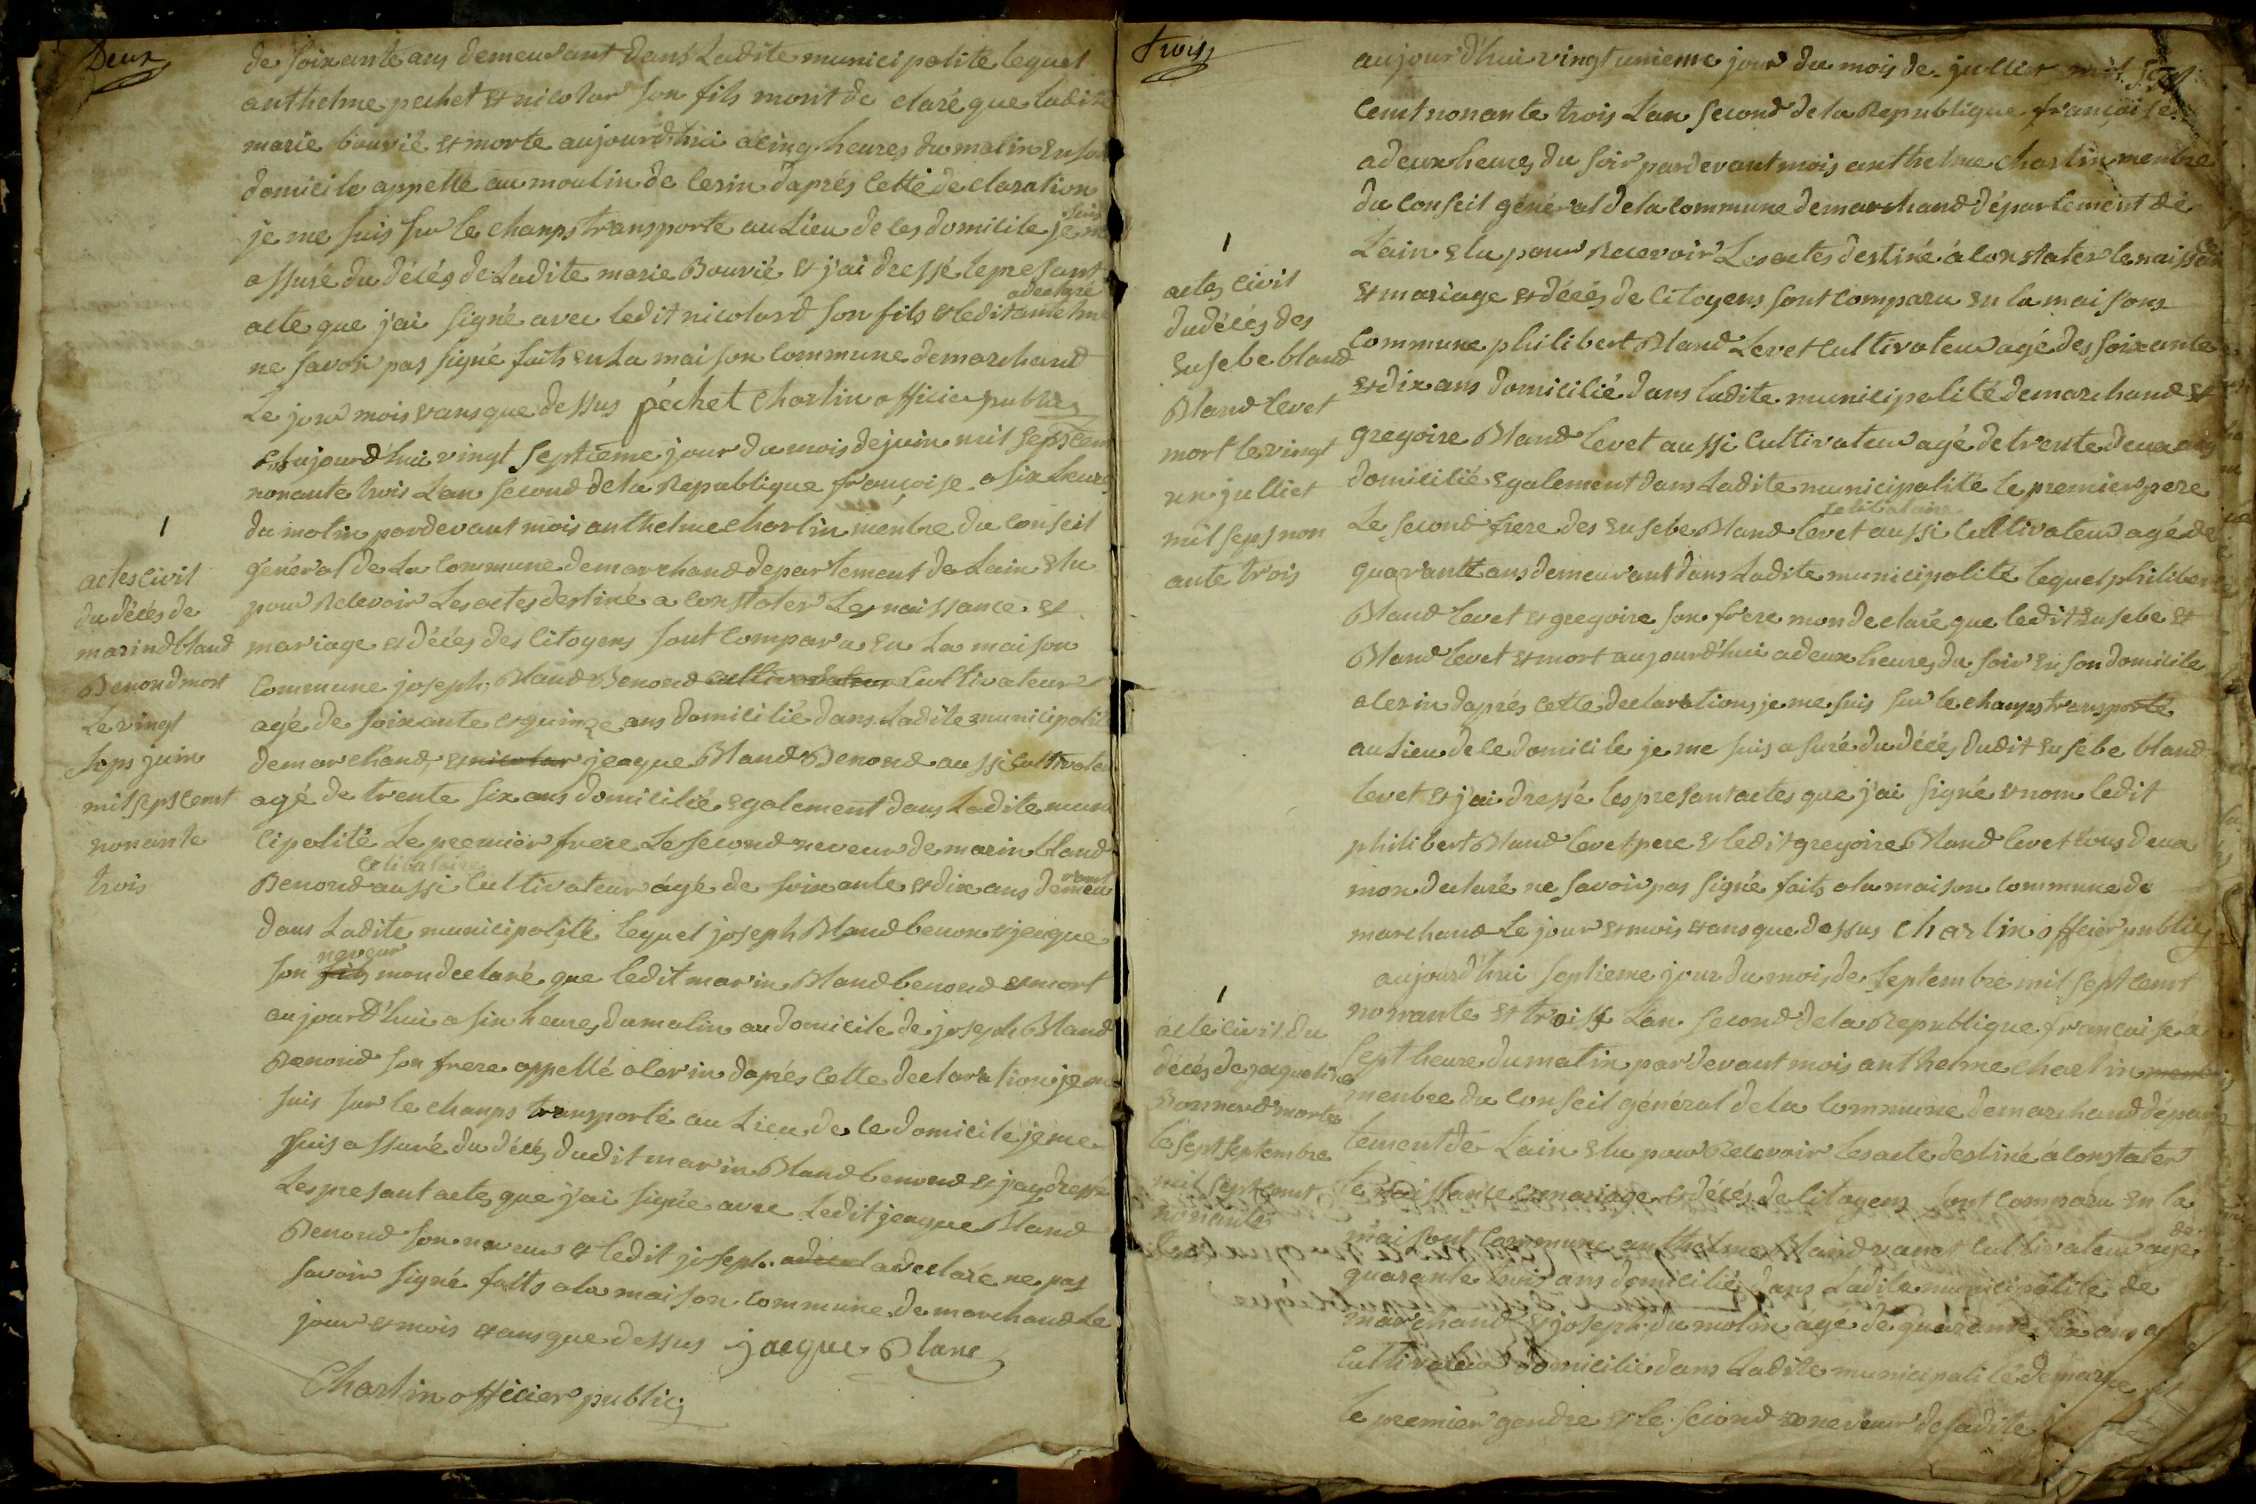 Deux
de soixante ans demeurant dans Ladite municipalite lequel
anthelme pechet et nicolar son fils mont de claré que ladite
marie bouvié et morte aujourdhui a cinq heures du matin en son
domicile appellé au moulin de cerin daprés cette declaration
je me suis sur le champs transporte au Lieu de ces domicile je me suis
assuré du décés de Ladite marie Bouvié et j'ai dressé le presant
acte que j'ai signé avec ledit nicolard son fils et ledit anthelme a declaré
ne savoir pas signé faits en La maison commune demarchand
Le jour mois et ans que dessus péchet Charlin officier public
aujourd'hui vingt septieme jour du mois de juin mil sept cent
nonante trois Lan second dela Republique françoise a six heures
du matin pardevant mois anthelme charlin menbre du conseil
général de La commune demarchand departement de Lain Elu
pour Recevoir Les actes destiné a constater Les naissance et
mariage et décés des citoyens sont comparu en La maison
commune joseph Bland Benond cultivateur cultivateur
agé de soixante et quinze ans domicilié dans Ladite municipalité
demarchand et nicolar jeaque Bland Benond aussi cultivateur
agé de trente six ans domicilié egalement dans Ladite muni
cipalité Le premier frere Le second neveur de marin bland
Benond celibataire aussi cultivateur agé de soixante et dix ans demeurant
dans Ladite municipalité lequel joseph Bland benon et jeaque
son fils neveur mon declaré que ledit marin Bland benond et mort
aujourd'hui a six heures du matin au domicile de joseph Bland
Benond son frere appellé a cerin daprés cette declaration je me
suis sur le champs transporté au Lieu de ce domicile je me
suis assuré du décés dudit marin Bland benond et jay dressé
Les presant actes que j'ai signé avec Ledit jeaque Bland
Benond son neveur et ledit joseph a declaré ne pas
savoir signé faits a la maison commune de marchand Le
jour et mois et ans que dessus jacque Blanc
Charlin officier public
1
actes civil
du décés de
marind bland
Benond mort
Le vingt
seps juin
mil seps cent
nonante
trois
Trois
aujourd'hui vingt unieme jour du mois de jullier mil sept
cent nonante trois Lan second de la Republique françoise
a deux heures du soir pardevant mois anthelme charlin menbre
du conseil général de la commune demarchand département de
Lain Elu pour Recevoir Les actes destiné a constater le naissance
et mariage et décés de citoyens sont comparu en la maisons
commune philibert Bland Levet cultivateur agé des soixante
et dix ans domicilié dans ladite municipalité demarchand et
gregoire Bland levet aussi cultivateur agé de trente deux ans
domicilié egalement dans Ladite municipalité le premier pere
Le second frere des Eusebe Bland levet celibataire aussi cultivateur agé de
quarante ans demeurant dans Ladite municipalité lequel philibert
Bland levet et gregoire son frere mon declaré que ledit Eusebe et
Bland levet et mort aujourd'hui a deux heures du soir en son domicile
a cerin daprés cette declarations je me suis sur le champs transporté
au Lieu de ce domicile je me suis asuré du décés dudit Eusebe bland
levet et j'ai dressé les presant actes que j'ai signé et nom ledit
philibert Bland levet pere et ledit gregoire Bland levet tous deux
mon declaré ne savoir pas signé faits a la maison commune de
marchand Le jour et mois et ans que dessus charlin officier public
1
actes civil
du décés des
Eusebe bland
Bland levet
mort le vingt
un julliet
mil seps non
ante trois
aujourd'hui septieme jour du mois de septembre mil sept cent
nonante et trois Lan second de la Republique francaise a
sept heure du matin pardevant mois anthelme charlin
menbre du conseil général de la commune demarchand dépar
tement de Lain Elu pour Recevoir les acte destiné a constater
le naissance et mariage et décés de citoyens sont comparu en la
maisons commune anthelme bland vanet cultivateur agé de
quarante trois ans domicilié dans Ladite municipalité de
marchand et joseph du molin agé de quarante six ans
cultivateur domicilié dans Ladite municipalité demarchand
le premier gendre et le second neveur de ladite
1
acte civil du
décés de jaqueline
Bonnard morte
le sept septembre
mil sept cent
nonante